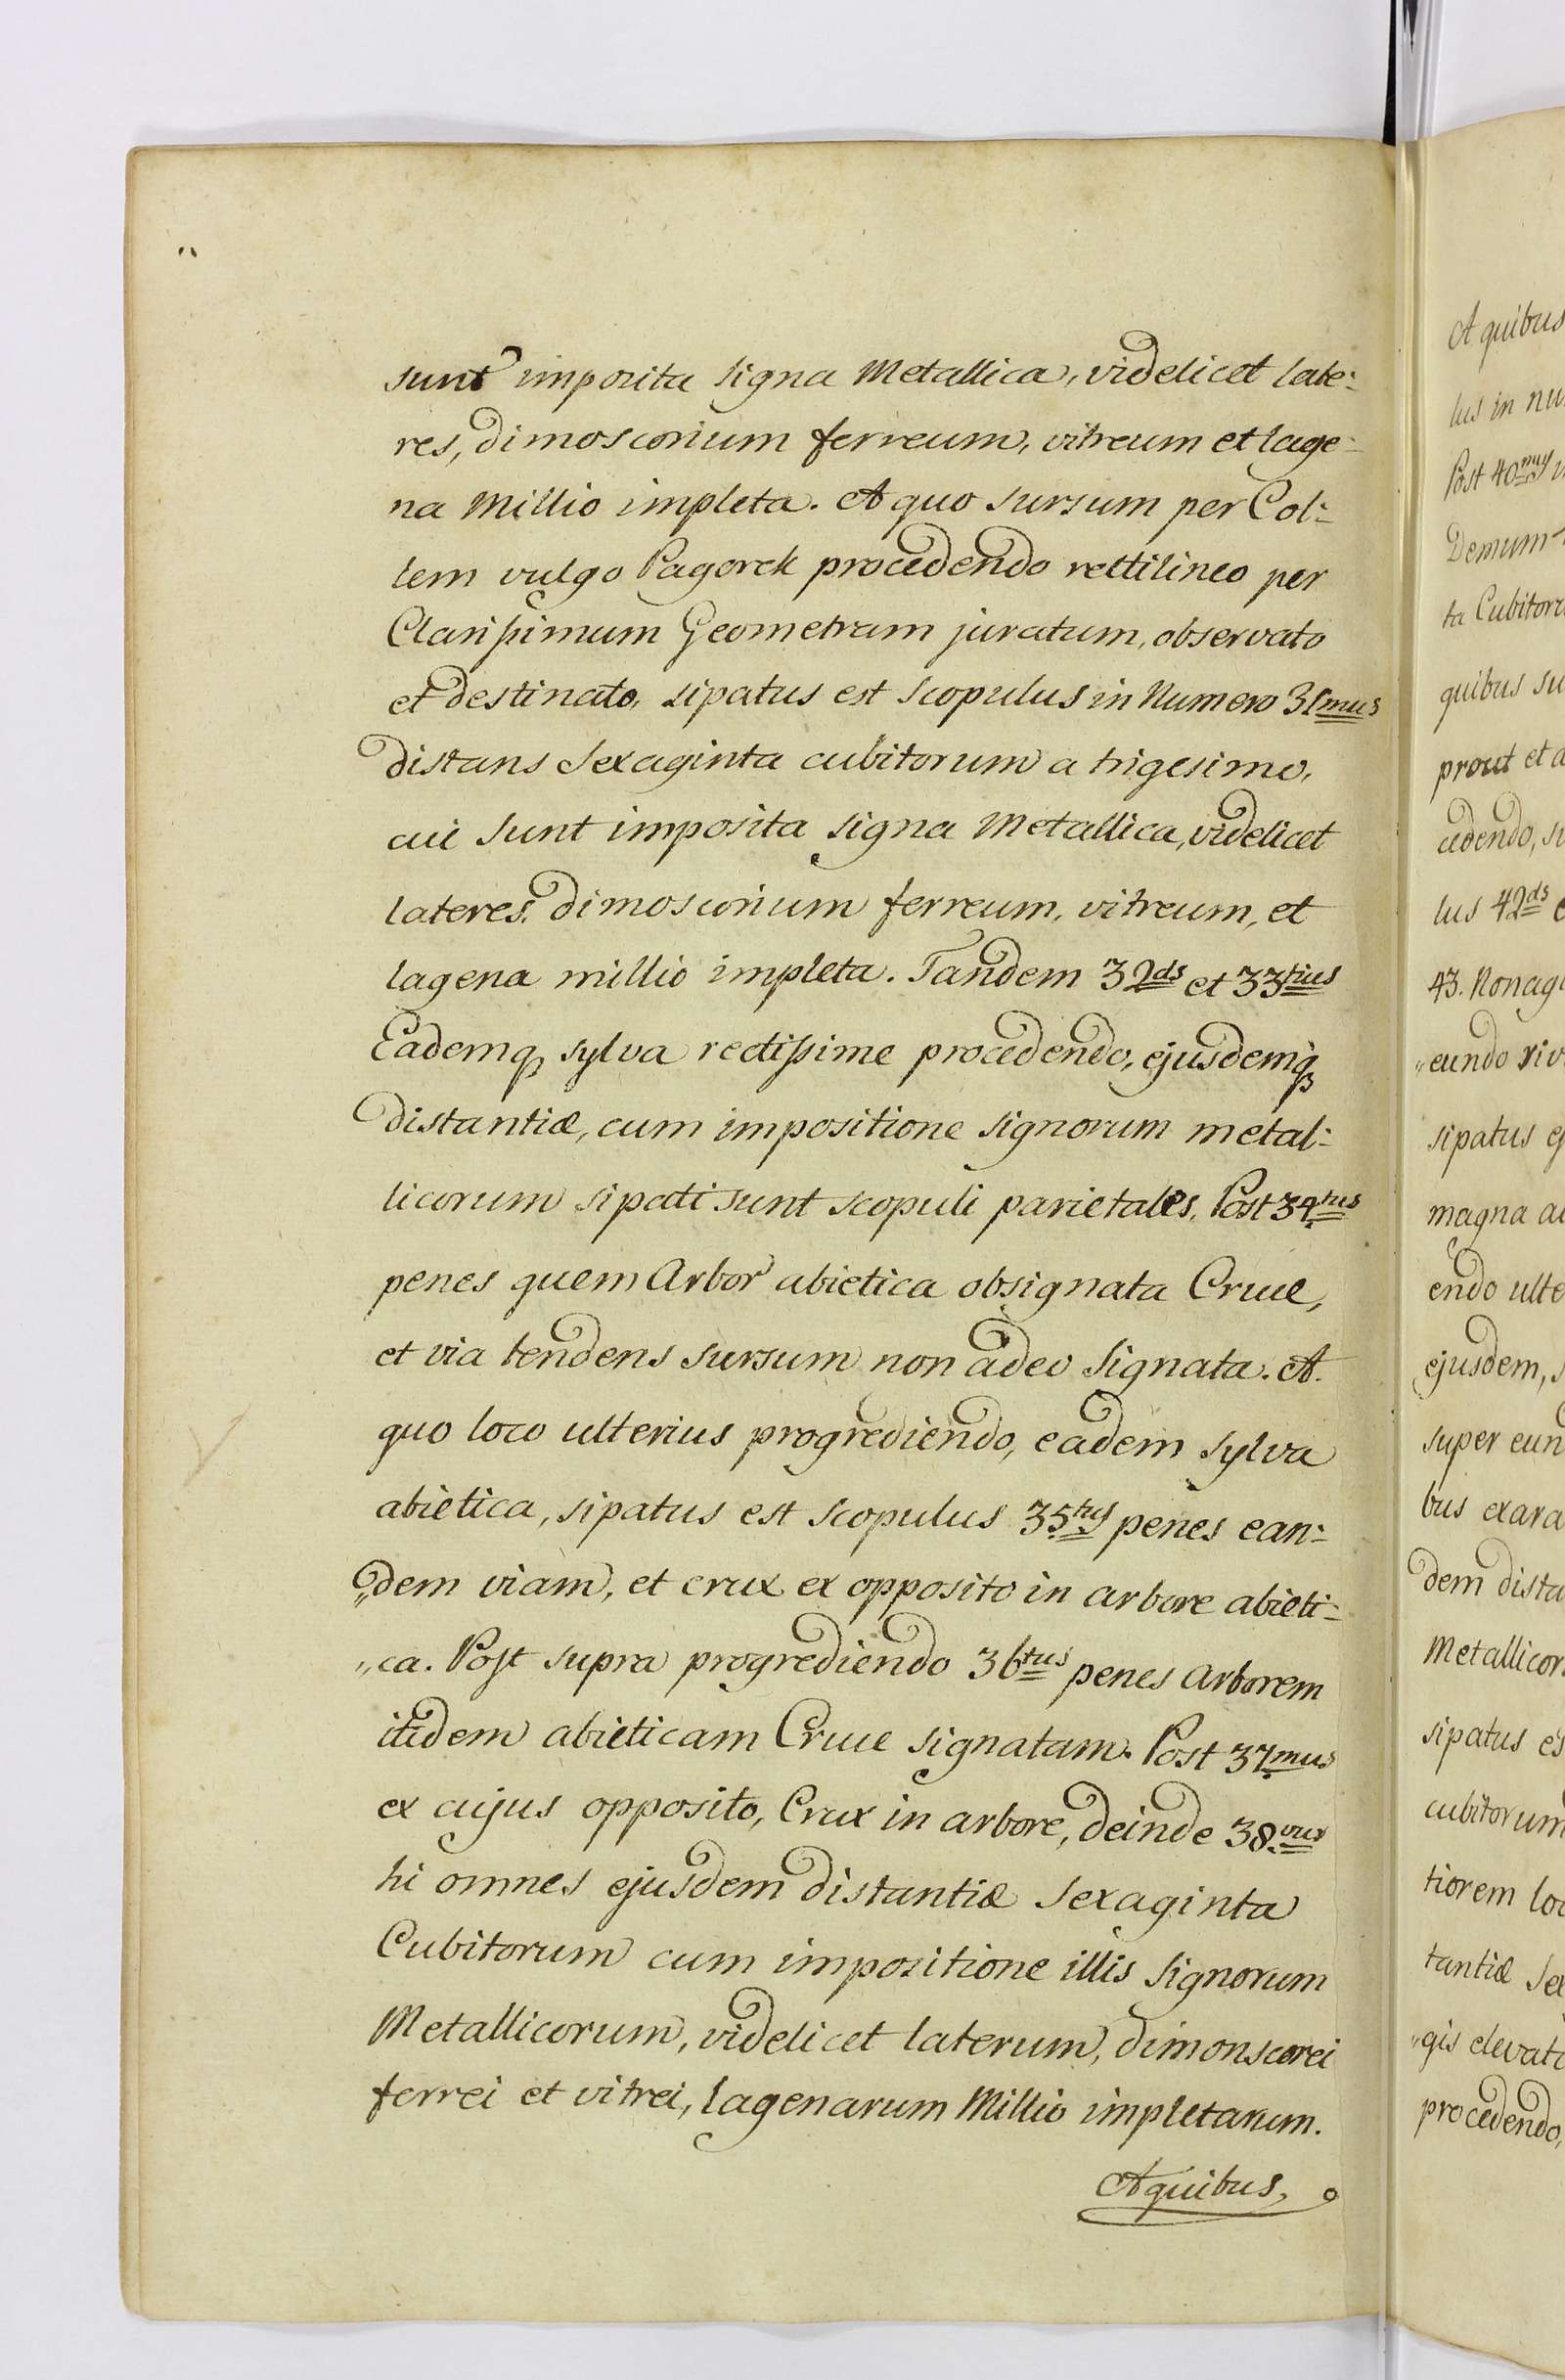 sunt imposita signa Metallica, videlicet late:
res, dimoscorium ferreum, vitreum et lage:
na Millio impleta. A quo sursum per Col:
lem vulgo Pagorek procedendo rettilineo per
Clarissimum Geometram juratum, observato
et destinato, sipatus est Scopulus in Numero 31mus
distans Sexaginta cubitorum a trigesimo,
cui sunt imposita signa Metallica, videlicet
lateres, dimoscorium ferreum, vitreum, et
lagena millio impleta. Tandem 32ds et 33tius
Eademq sylva rectissime procedendo, ejusdemq
distantiæ, cum impositione signorum metal:
licorum sipati sunt scopuli parietales. Post 34tus
penes quem Arbor abietica obsignata Cruce,
et via tendens sursum non adeo signata. A
quo loco ulterius progrediendo, eadem sylva
abietica, sipatus est scopulus 35tus penes ean:
"dem viam, et crux ex opposito in arbore abieti:
"ca. Post supra progrediendo 36tus penes Arborem
itidem abieticam Cruce signatam. Post 37mus
ex cujus opposito, Crux in arbore, deinde 38.vus
hi omnes ejusdem distantiæ Sexaginta
Cubitorum cum impositione illis Signorum
Metallicorum, videlicet laterum, dimonscorei
ferrei et vitrei, lagenarum Millio impletarum.
A quibus,
A quibus
lus in nu
Post 40mus
Demum
ta Cubitor
quibus su
prout et a
cedendo, su
lus 42ds e
43. Nonagi
"eundo riv
sipatus es
magna a
endo ulte
ejusdem, s
super eun
bus exara
dem dista
Metallicor
sipatus es
cubitorum
tiorem loc
tantiæ Sex
"gis elevato
procedendo,